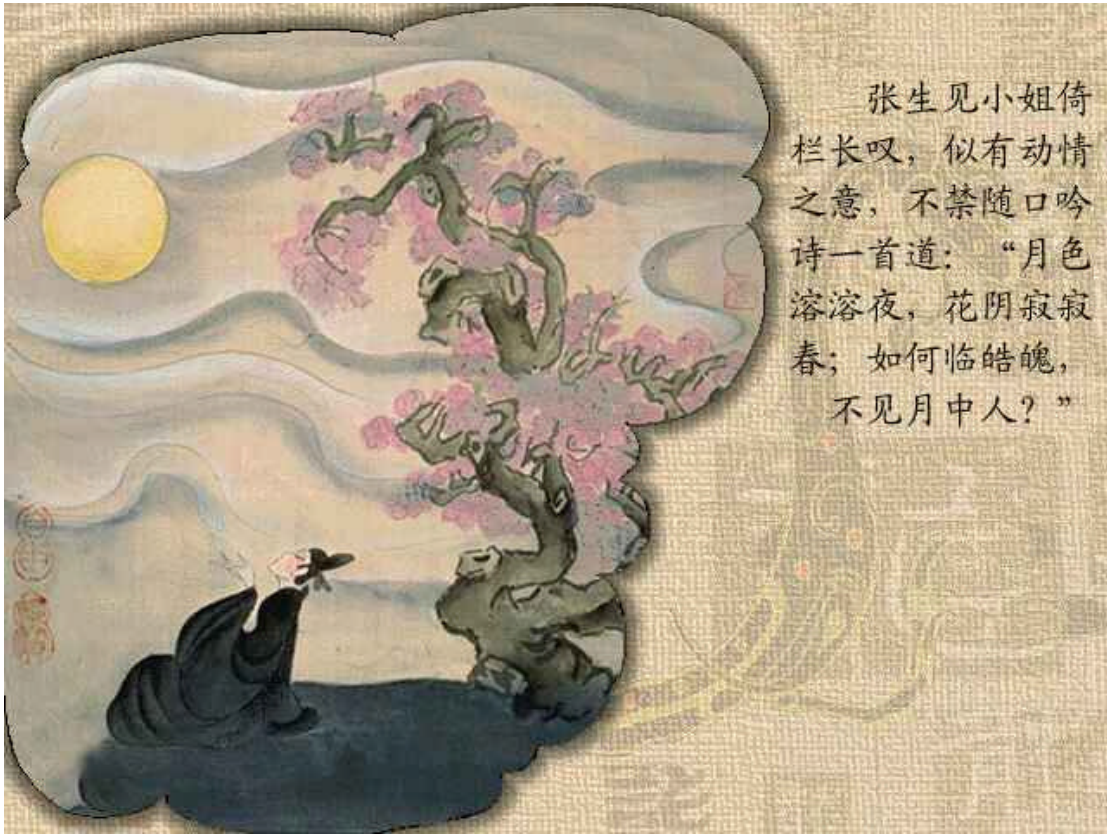 张生见小姐倚
栏长叹，似有动情
之意，不禁随口吟
诗一首道：“月色
溶溶夜，花阴寂寂
春；如何临皓魄，
不见月中人？”